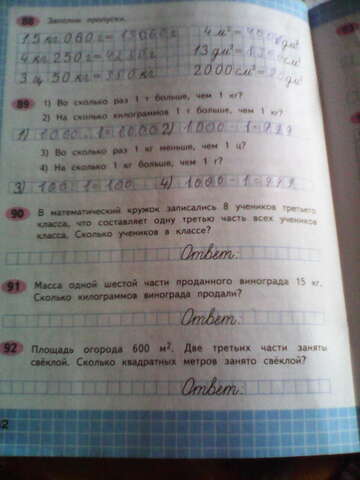 88 Заполни пропуски.
15 кг 060 г = 15060 г 4 м² = 400 дм²
4 кг 250 г = 4250 г 13 дм² = 1300 см²
3 ц 50 кг = 350 кг 2000 см² = 20 дм²
89 1) Во сколько раз 1 т больше, чем 1 кг?
2) На сколько килограммов 1 т больше, чем 1 кг?
1) 1000 : 1 = 1000 2) 1000 - 1 = 999
3) Во сколько раз 1 кг меньше, чем 1 ц?
4) На сколько 1 кг больше, чем 1 г?
3) 100 : 1 = 100 4) 1000 - 1 = 999
90 В математический кружок записались 8 учеников третьего
класса, что составляет одну третью часть всех учеников
класса. Сколько учеников в классе?
Ответ:
91 Масса одной шестой части проданного винограда 15 кг.
Сколько килограммов винограда продали?
Ответ:
92 Площадь огорода 600 м². Две третьих части заняты
свёклой. Сколько квадратных метров занято свёклой?
Ответ:
2